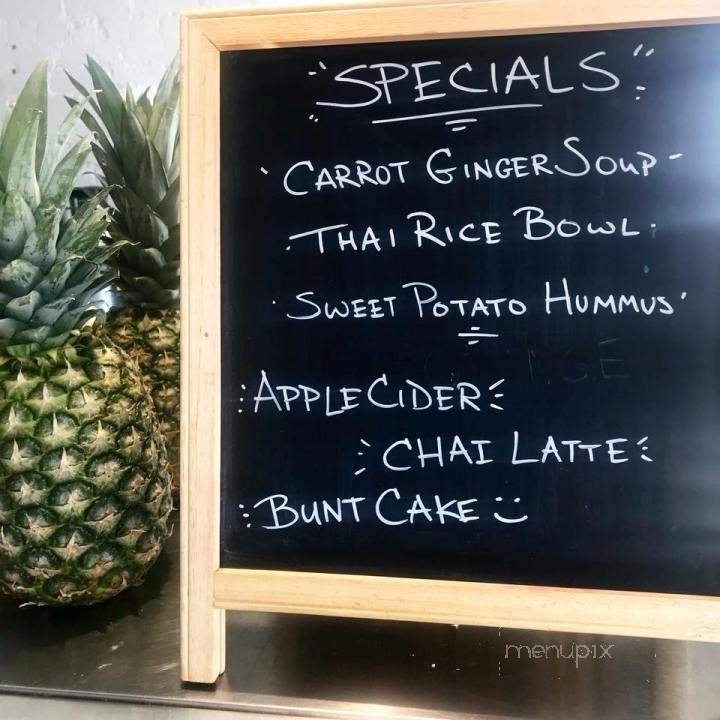 "SPECIALS"
CARROT GINGER SOUP
THAI RICE BOWL
SWEET POTATO HUMMUS
APPLE CIDER
CHAI LATTE
BUNT CAKE
menupix